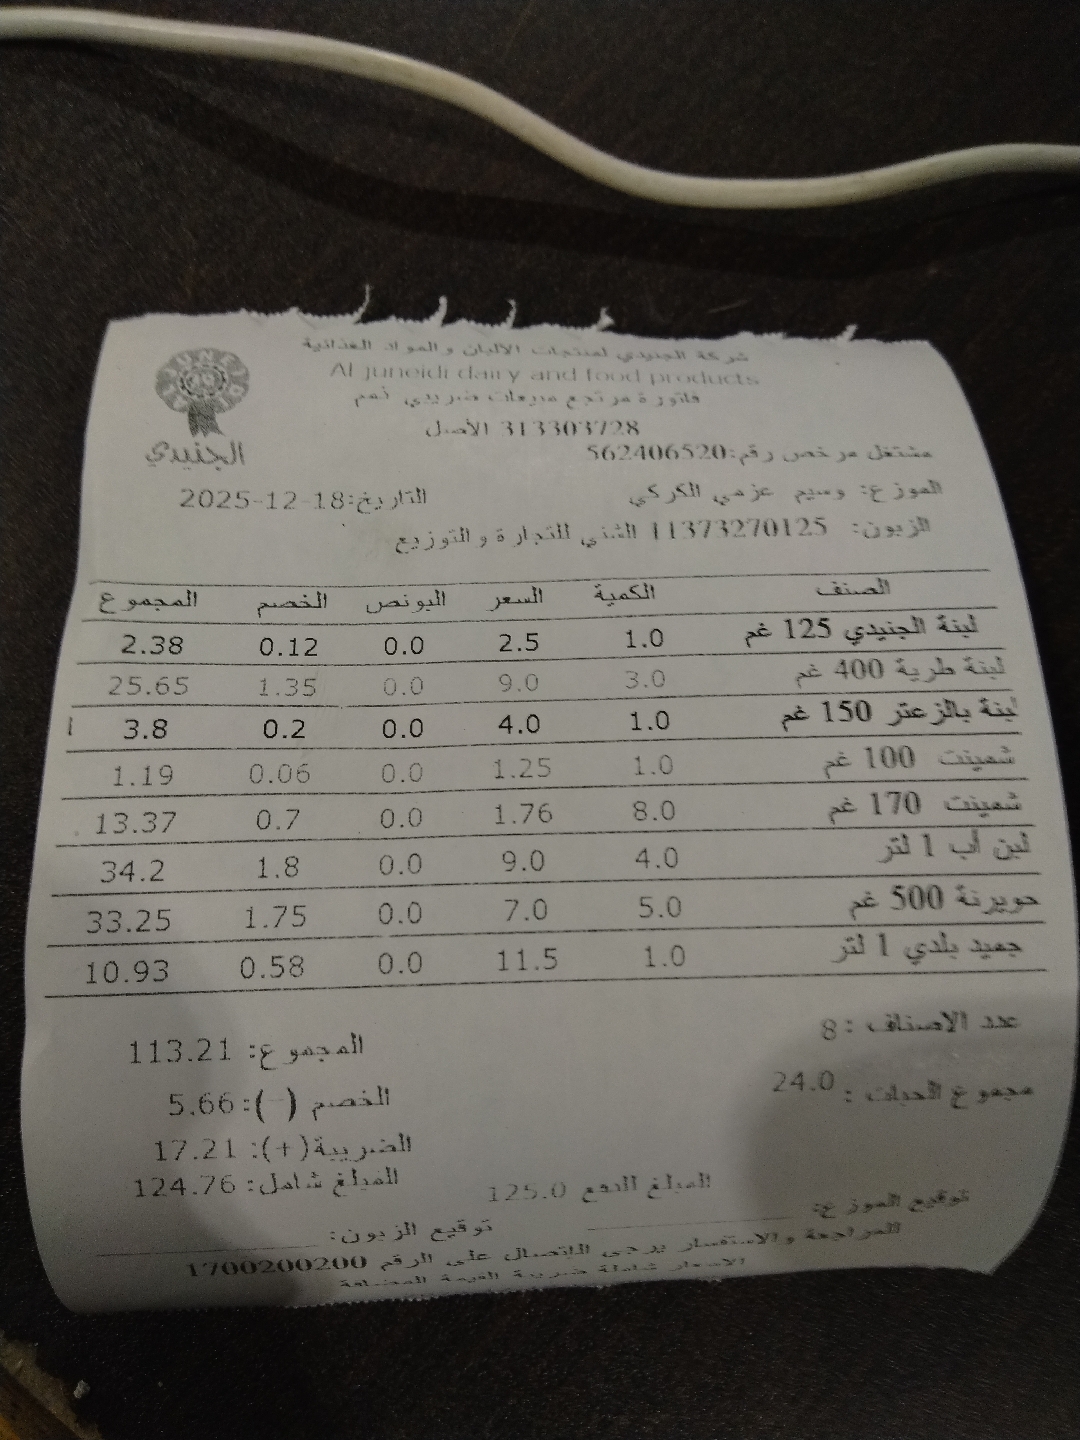 شركة الجنيدي لمنتجات الألبان والمواد الغذائية
Al juneidi dairy and food products
فاتورة مرتجع مبيعات ضريبي ذمم
313303728 الأصل
الجنيدي
مشتغل مرخص رقم:562406520
الموزع: وسيم عزمي الكركي
التاريخ:18-12-2025
الزبون: 11373270125 الشني للتجارة والتوزيع
الصنف الكمية السعر البونص الخصم المجموع
لبنة الجنيدي 125 غم 1.0 2.5 0.0 0.12 2.38
لبنة طرية 400 غم 3.0 9.0 0.0 1.35 25.65
لبنة بالزعتر 150 غم 1.0 4.0 0.0 0.2 3.8
شمينت 100 غم 1.0 1.25 0.0 0.06 1.19
شمينت 170 غم 8.0 1.76 0.0 0.7 13.37
لبن أب 1 لتر 4.0 9.0 0.0 1.8 34.2
حويرنة 500 غم 5.0 7.0 0.0 1.75 33.25
جميد بلدي 1 لتر 1.0 11.5 0.0 0.58 10.93
عدد الاصناف : 8
المجموع: 113.21
مجموع الحبات : 24.0
الخصم (-): 5.66
الضريبة(+): 17.21
المبلغ شامل: 124.76
المبلغ للدفع 125.0
توقيع الموزع:
توقيع الزبون:
للمراجعة والاستفسار يرجى الاتصال على الرقم 1700200200
الاسعار شاملة ضريبة القيمة المضافة